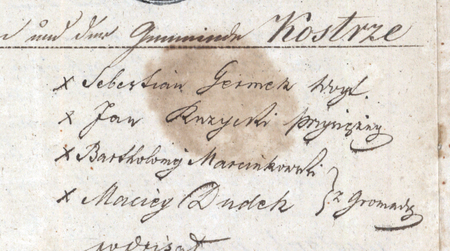 und der Gemeinde Kostrze
x Sebestian Germek Woyt.
x Jan Krzycki przysiężny
x Bartholomy Marcinkowski
x Maciey Dudek } z Gromady
podpisał